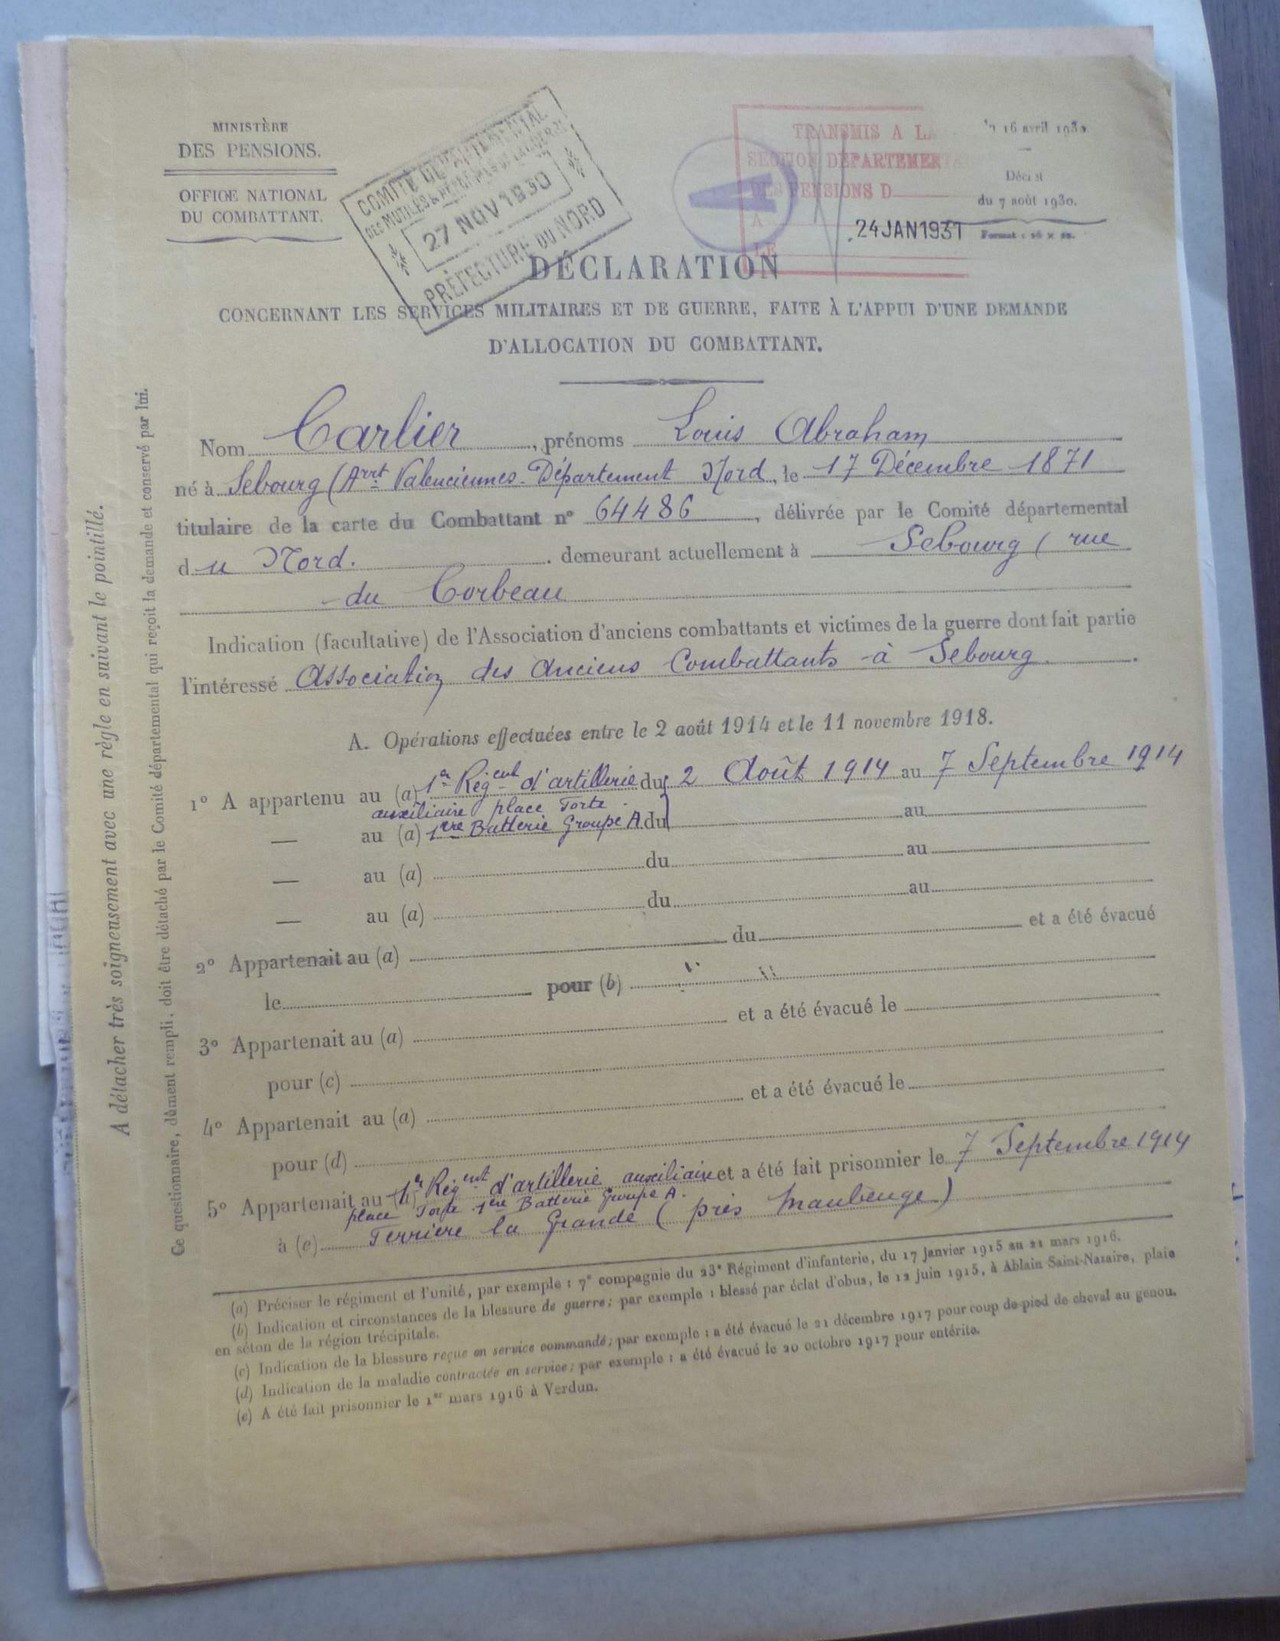 MINISTÈRE
DES PENSIONS.
OFFICE NATIONAL
DU COMBATTANT.
COMITÉ DÉPARTEMENTAL
DES MUTILÉS &
27 NOV 1930
PRÉFECTURE DU NORD
TRANSMIS A LA
SECTION DÉPARTEMENTALE
DES PENSIONS D
A
LE
24 JAN 1931
16 avril 1930
du 7 août 1930.
DÉCLARATION
CONCERNANT LES SERVICES MILITAIRES ET DE GUERRE, FAITE À L'APPUI D'UNE DEMANDE
D'ALLOCATION DU COMBATTANT.
Nom Carlier, prénoms Louis Abraham
né à Sebourg (Arrt Valenciennes - Département Nord, le 17 Décembre 1871
titulaire de la carte du Combattant n° 64486, délivrée par le Comité départemental
du Nord. demeurant actuellement à Sebourg (rue
du Corbeau
Indication (facultative) de l'Association d'anciens combattants et victimes de la guerre dont fait partie
l'intéressé Association des Anciens Combattants à Sebourg.
A. Opérations effectuées entre le 2 août 1914 et le 11 novembre 1918.
1° A appartenu au (a) 1er Régent d'artillerie du 2 Août 1914 au 7 Septembre 1914
auxiliaire place forte
— au (a) 1ère Batterie Groupe A. du au
— au (a) du au
— au (a) du au
2° Appartenait au (a) du et a été évacué
le pour (b)
3° Appartenait au (a) et a été évacué le
pour (c)
4° Appartenait au (a) et a été évacué le
pour (d)
5° Appartenait au 1er Régent d'artillerie auxiliaire et a été fait prisonnier le 7 Septembre 1914
place forte 1ère Batterie Groupe A.
à (e) Ferrière la Grande (près Maubeuge)
(a) Préciser le régiment et l'unité, par exemple : 7e compagnie du 23e Régiment d'infanterie, du 17 janvier 1915 au 21 mars 1916.
(b) Indication et circonstances de la blessure de guerre ; par exemple : blessé par éclat d'obus, le 12 juin 1915, à Ablain-Saint-Nazaire, plaie
en séton de la région trécipitale.
(c) Indication de la blessure reçue en service commandé ; par exemple : a été évacué le 21 décembre 1917 pour coup de pied de cheval au genou.
(d) Indication de la maladie contractée en service ; par exemple : a été évacué le 20 octobre 1917 pour entérite.
(e) A été fait prisonnier le 1er mars 1916 à Verdun.
A détacher très soigneusement avec une règle en suivant le pointillé.
Ce questionnaire, dûment rempli, doit être détaché par le Comité départemental qui reçoit la demande et conservé par lui.